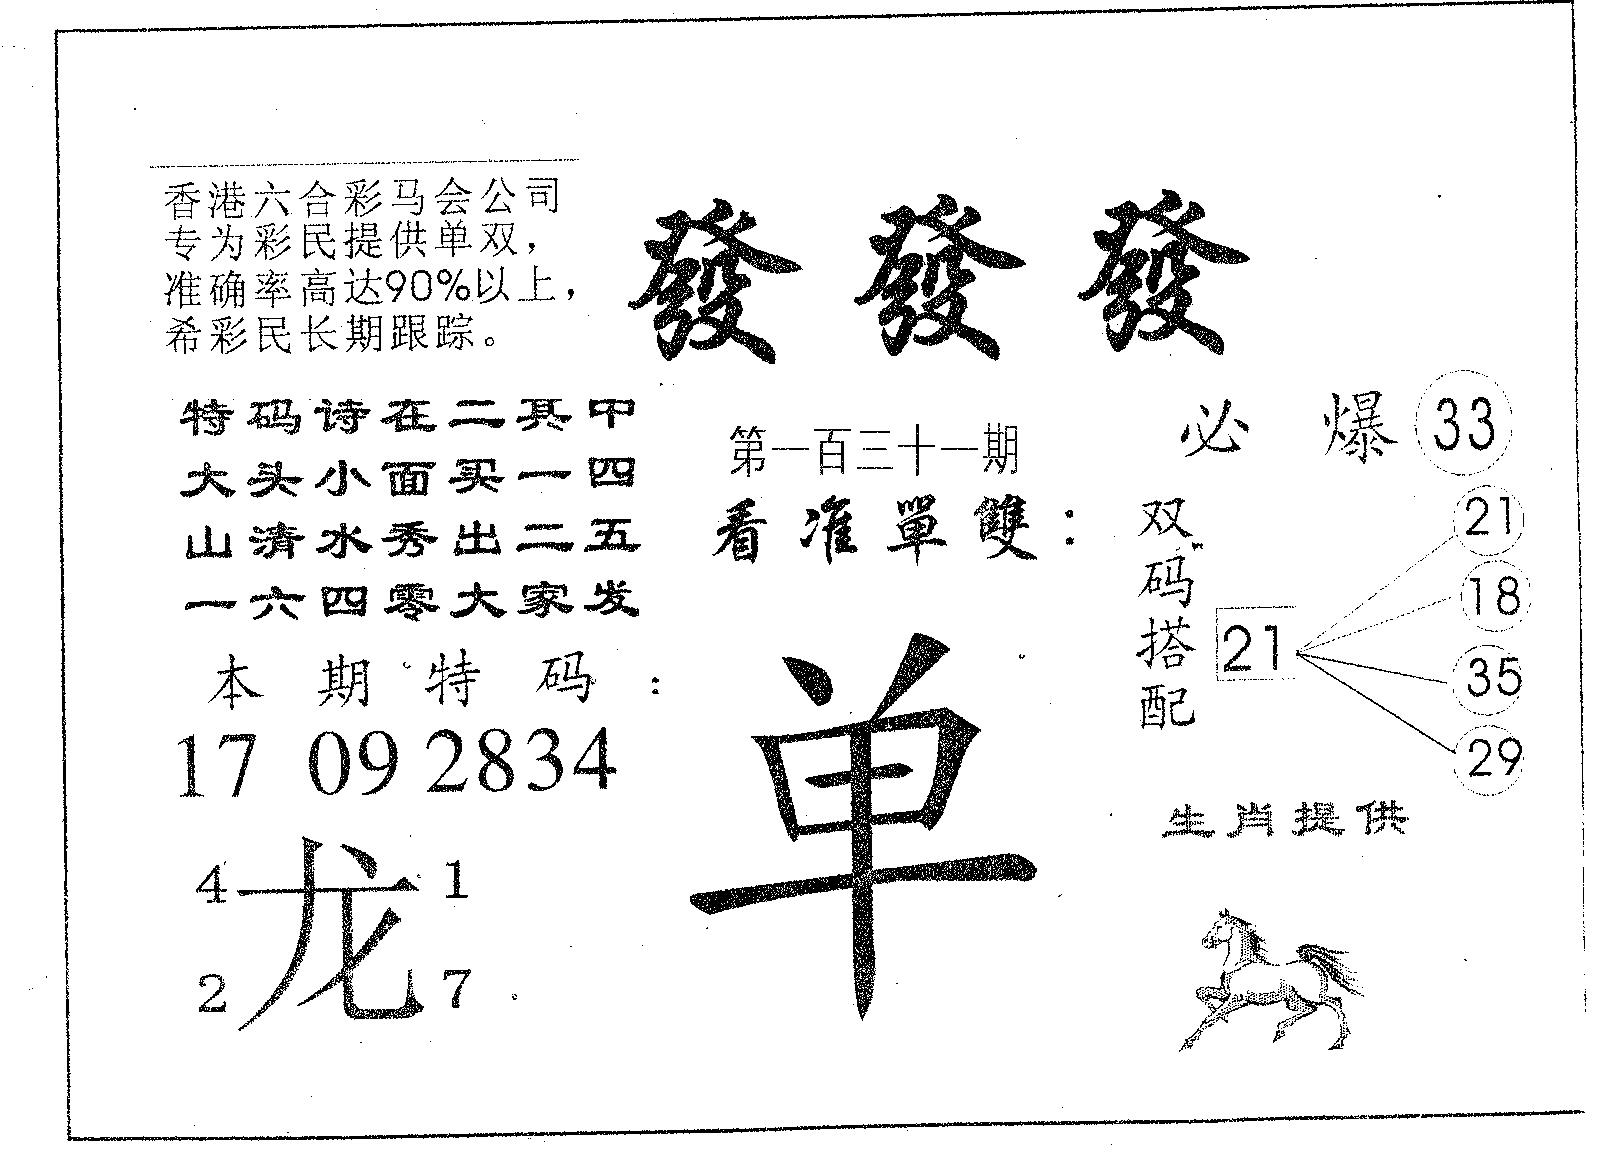 香港六合彩马会公司
专为彩民提供单双，
准确率高达90%以上，
希彩民长期跟踪。
發 發 發
特码诗在二其中
大头小面买一四
山清水秀出二五
一六四零大家发
本期特码：
17 09 28 34
4 龙 1
2 7
第一百三十一期
看准單雙：
单
必爆 33
双码搭配
21
21
18
35
29
生肖提供